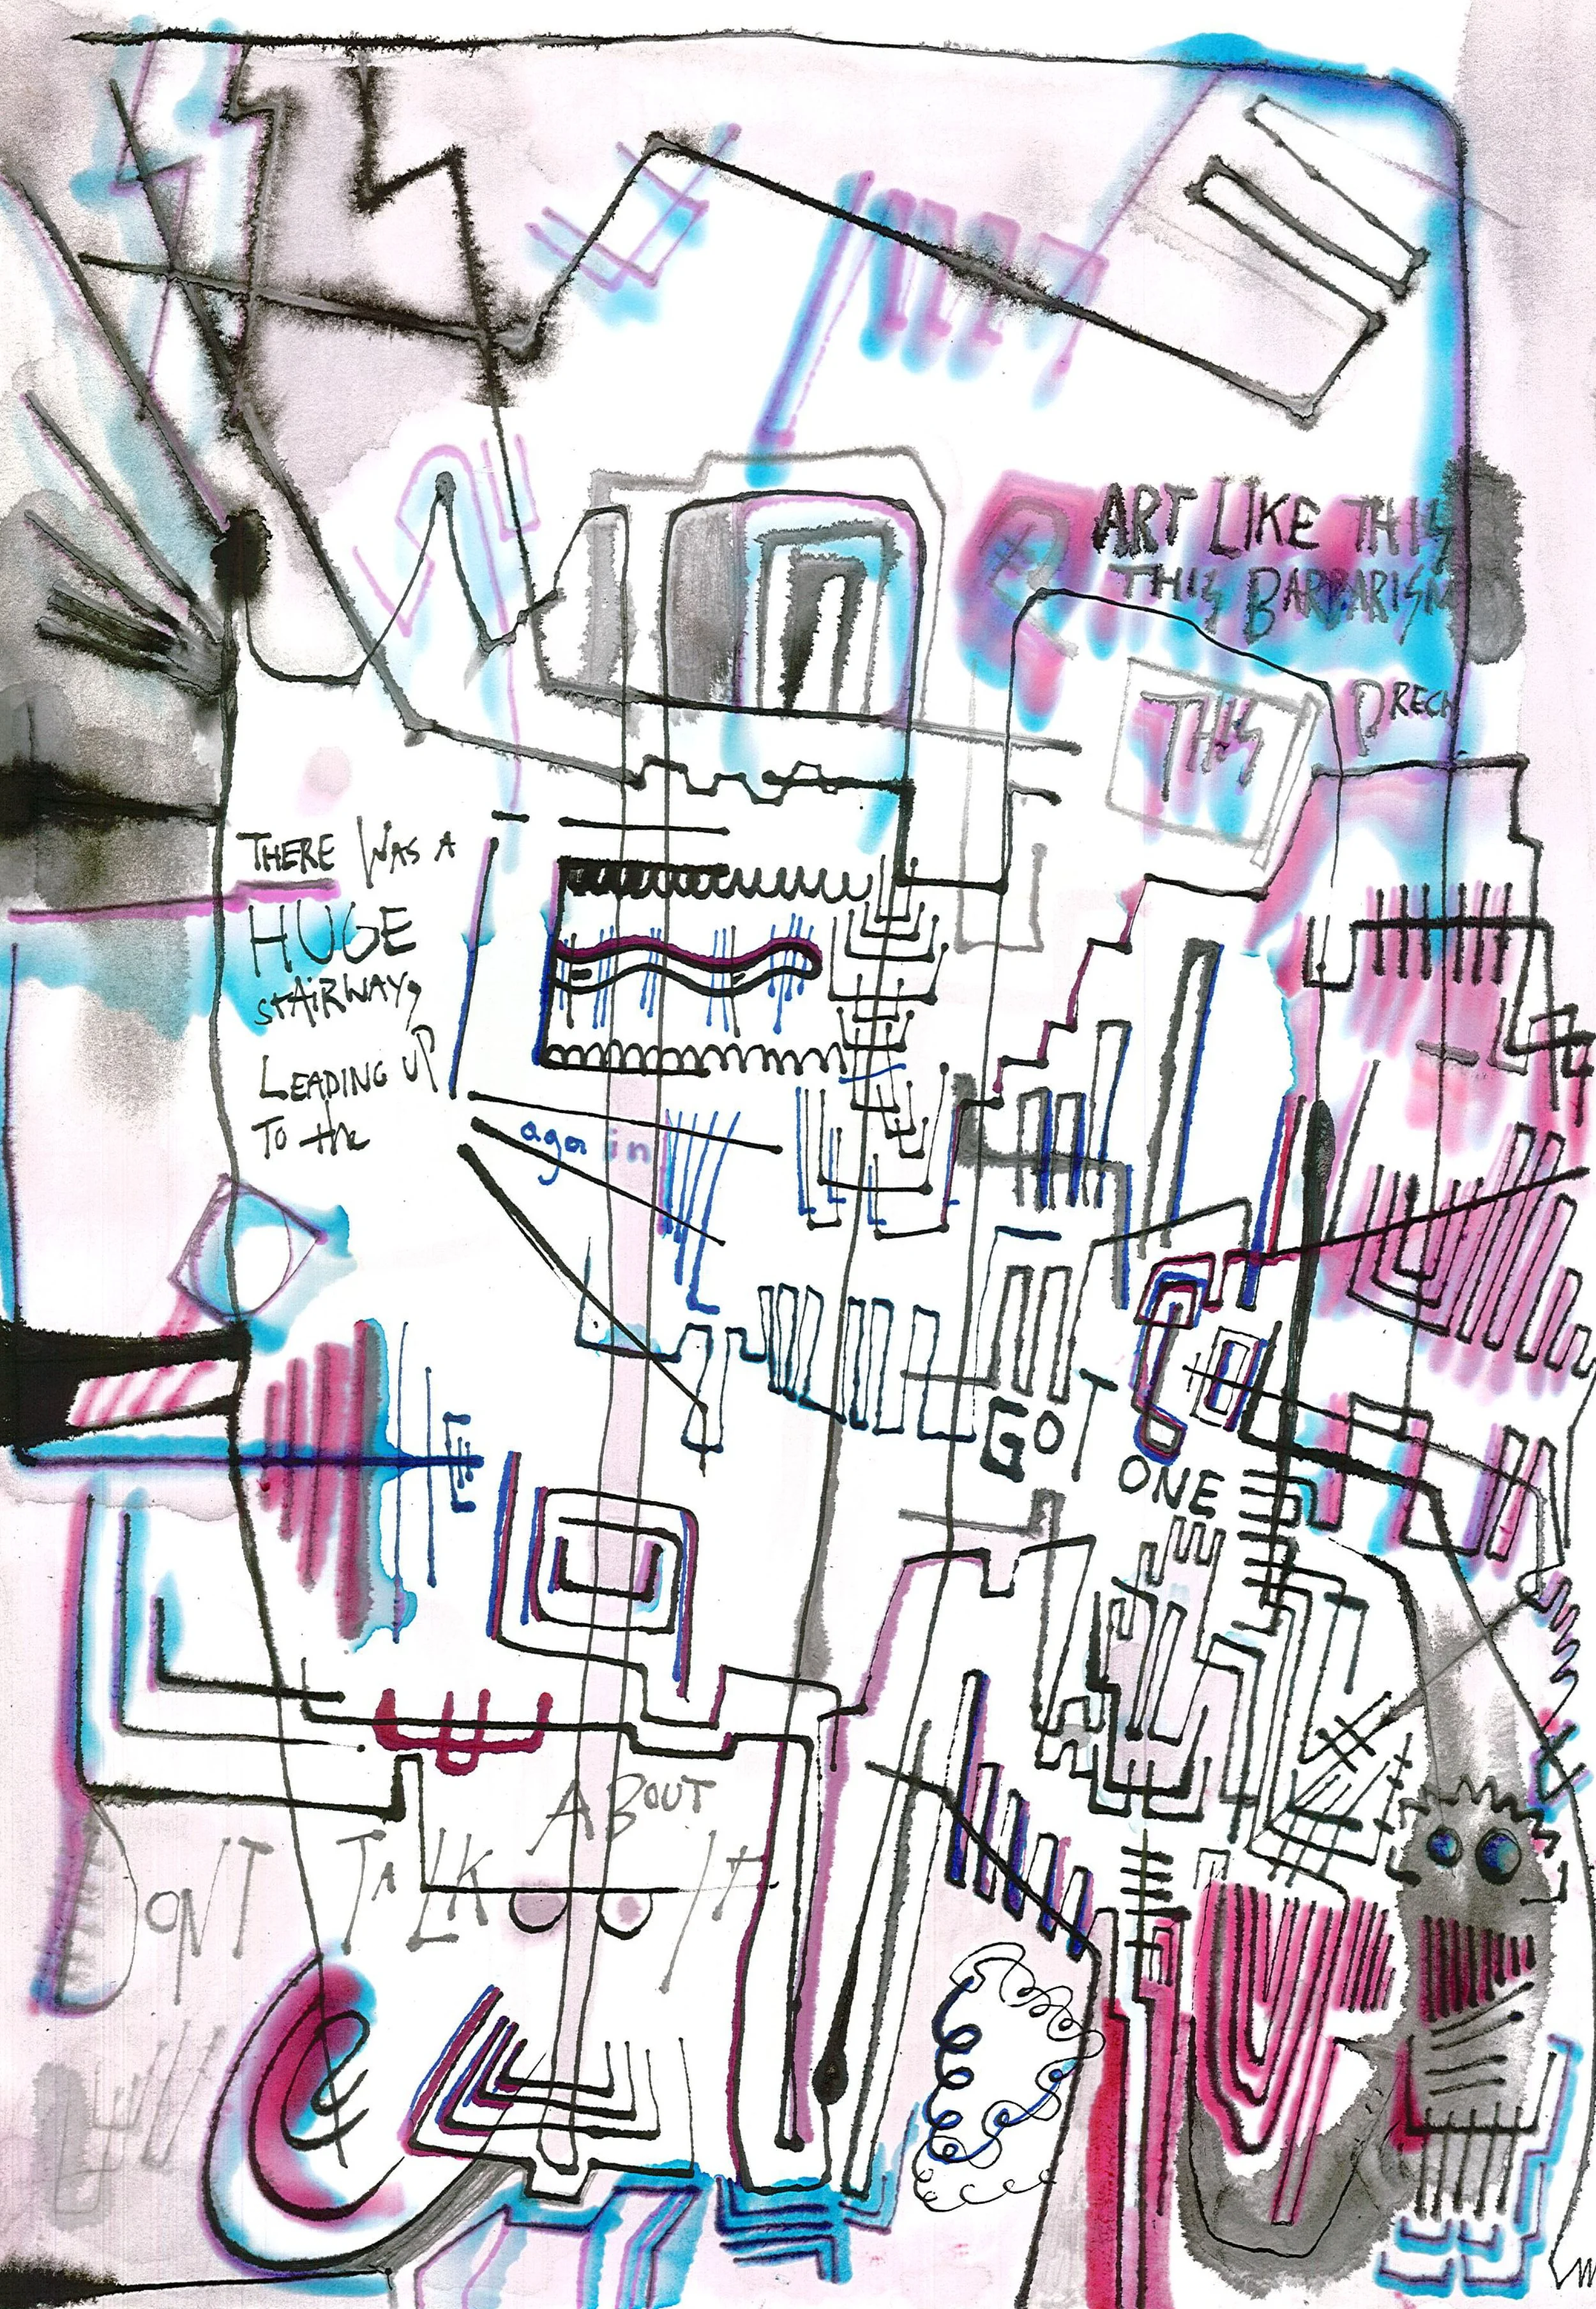 ART LIKE THIS
THIS BARBARISM
THIS
PRECH
THERE WAS A
HUGE
STAIRWAY,
LEADING UP
TO the
again
GOT
ONE
ABOUT
DONT TALK It